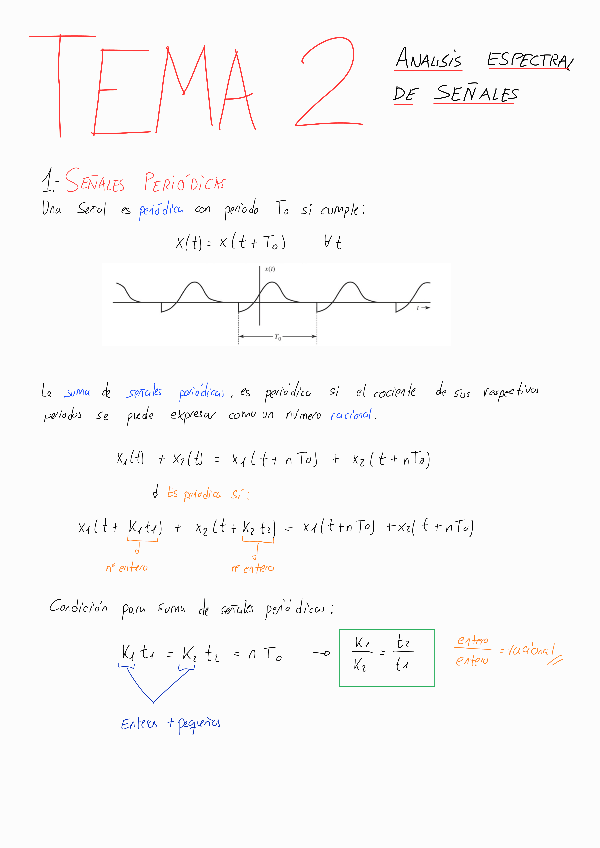 TEMA 2
ANALISIS ESPECTRAL
DE SEÑALES
1.- SEÑALES PERIÓDICAS
Una señal es periódica con periodo T₀ si cumple:
x(t) = x(t + T₀) ∀t
x(t)
t
T₀
La suma de señales periódicas, es periódica si el cociente de sus respectivos
periodos se puede expresar como un número racional.
x1(t) + x2(t) = x1(t + nT₀) + x2(t + nT₀)
Es periodica si:
x1(t + K1t1) + x2(t + K2t2) = x1(t + nT₀) + x2(t + nT₀)
nº entero nº entero
Condición para suma de señales periódicas:
K1 t1 = K2 t2 = n T₀ → K1/K2 = t2/t1 entero/entero = racional
Enteros + pequeños